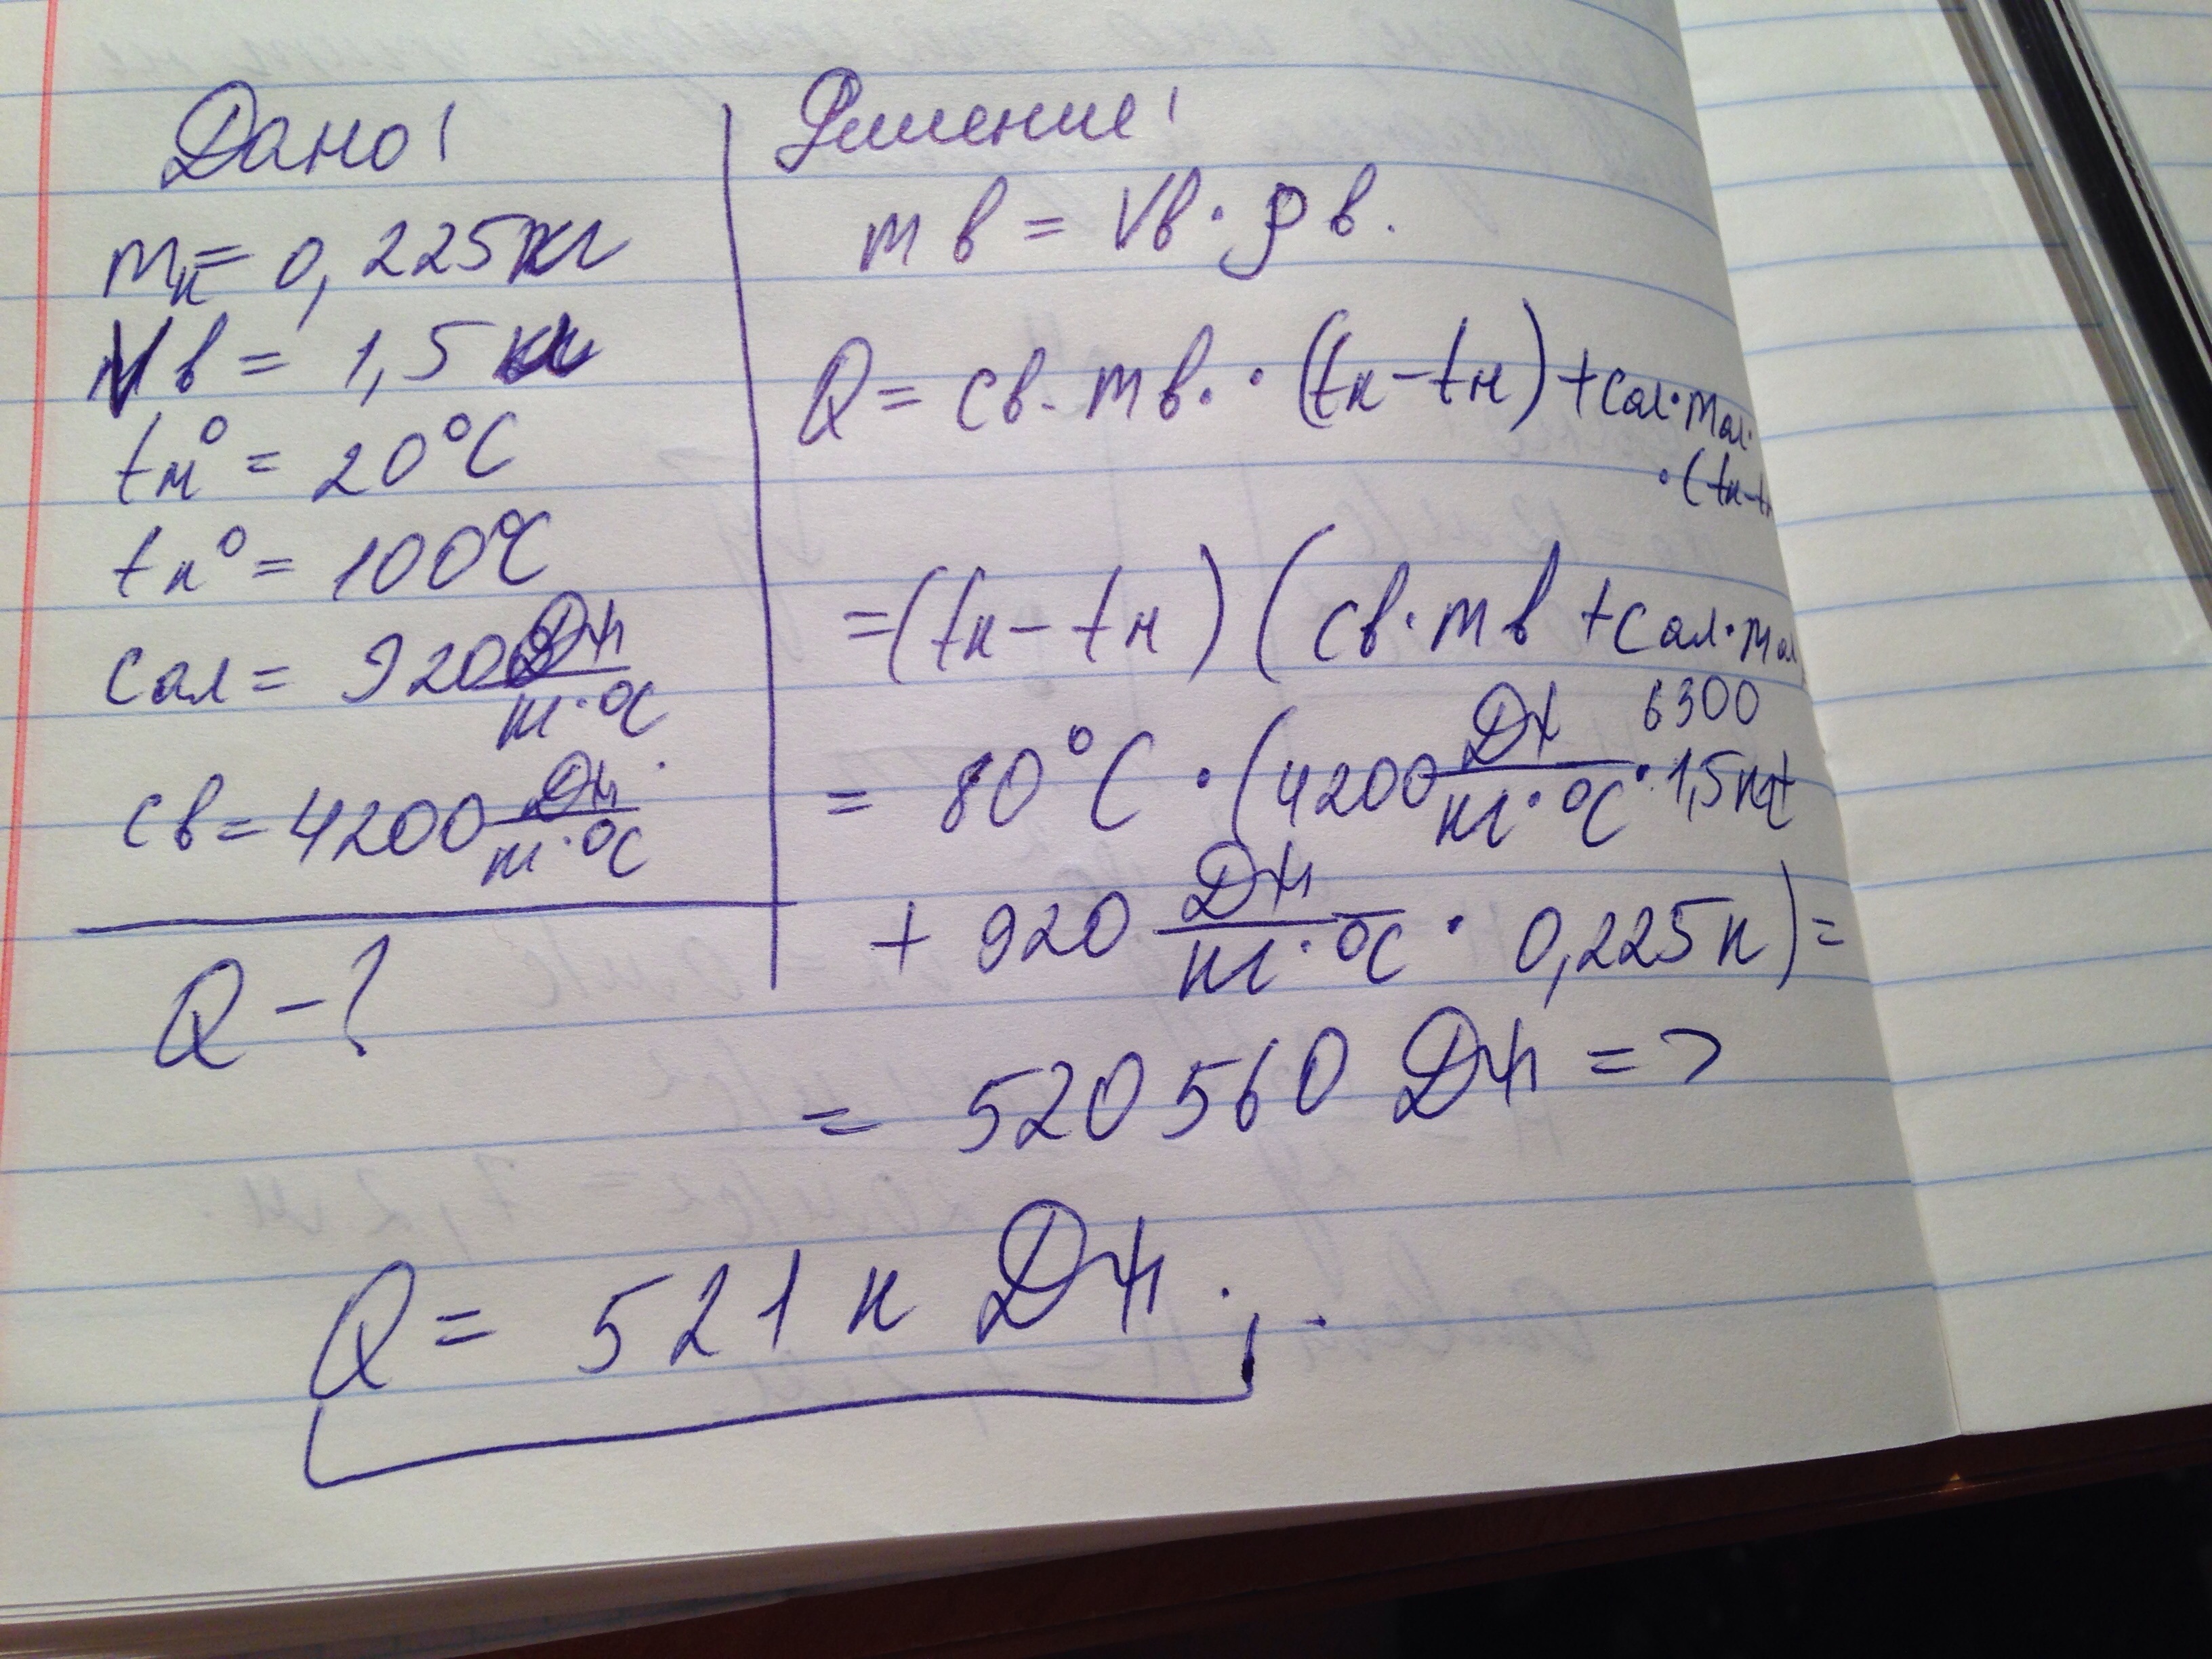 Дано:
mк = 0,225 кг
Vв = 1,5
tн° = 20°C
tк° = 100°C
Cал = 920 Дж/кг·°C
Cв = 4200 Дж/кг·°C
Q - ?
Решение:
mв = Vв · ρв.
Q = Cв · mв · (tк - tн) + Cал · mал ·
· (tк - tн
= (tк - tн) (Cв · mв + Cал · mал
6300
= 80°C · (4200 Дж/кг·°C · 1,5кг +
+ 920 Дж/кг·°C · 0,225к) =
= 520560 Дж =>
Q = 521 к Дж.